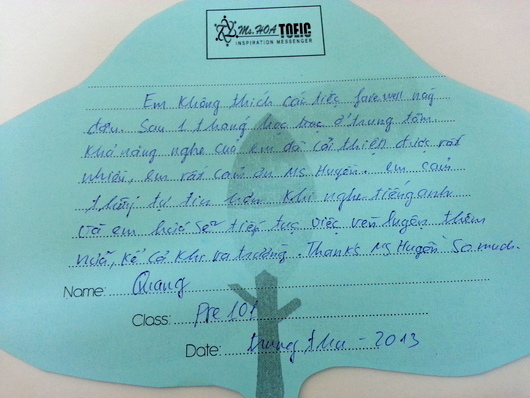 Ms. HOA TOEIC
INSPIRATION MESSENGER
Em không thích các tiệc farewell này
đâu. Sau 1 tháng học học ở trung tâm.
Khả năng nghe của em đã cải thiện được rất
nhiều, em rất cảm ơn Ms Huyền. em cảm
thấy tự tin hơn khi nghe tiếng anh
và em hứa sẽ tiếp tục việc rèn luyện thêm
nữa, kể cả khi ra trường. Thanks Ms Huyền So much.
Name: Quang
Class: Pre 101
Date: trung thu - 2013